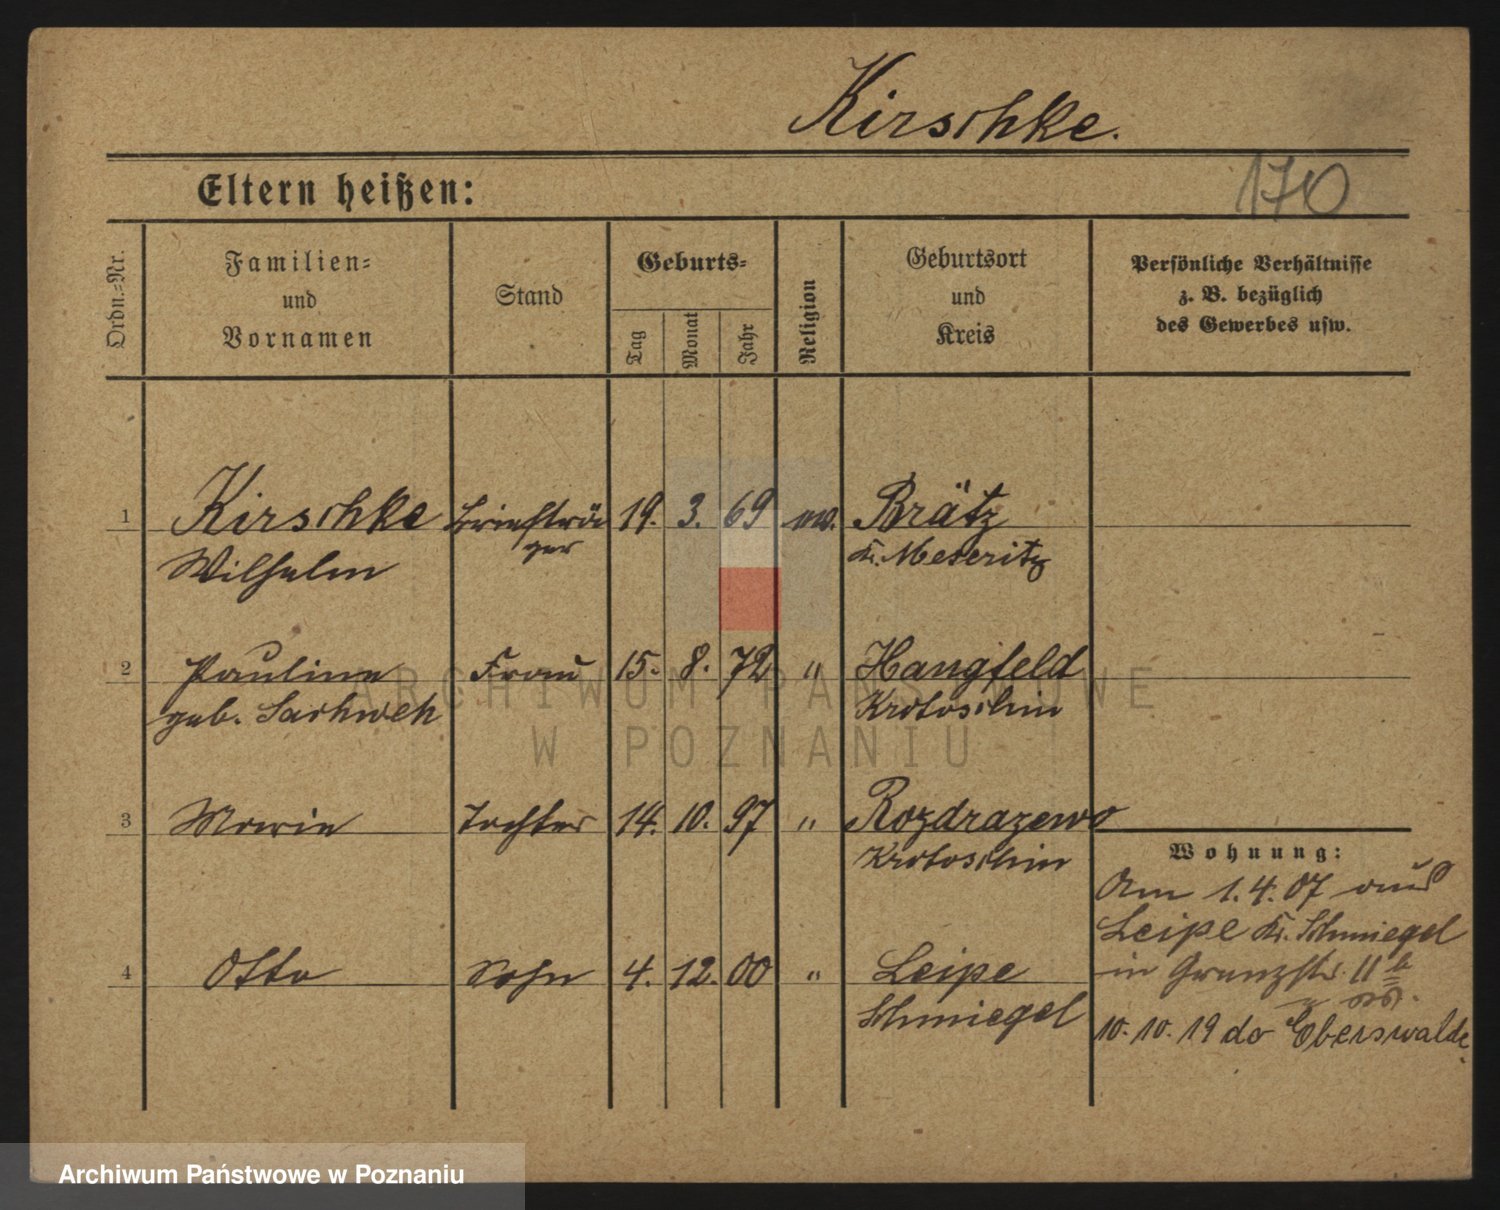 Kirschke.
Eltern heißen:
170
Ordn.-Nr.
Familien-
und
Vornamen
Stand
Geburts-
Tag
Monat
Jahr
Religion
Geburtsort
und
Kreis
Persönliche Verhältnisse
z. B. bezüglich
des Gewerbes usw.
1 Kirschke Briefträ 19. 3. 69 ev. Brätz
Wilhelm ger Kr. Meseritz
2 Pauline Frau 15. 8. 72 " Hangfeld
geb. Sackweh Krotoschin
3 Marie Tochter 14. 10. 97 " Rozdrazewo
Krotoschin
4 Otto Sohn 4. 12. 00 " Leipe
Schmiegel
Wohnung:
Am 1.4.07 aus
Leipe Kr. Schmiegel
in 11
10. 10. 19 do Eberswalde.
ARCHIWUM PAŃSTWOWE
W POZNANIU
Archiwum Państwowe w Poznaniu